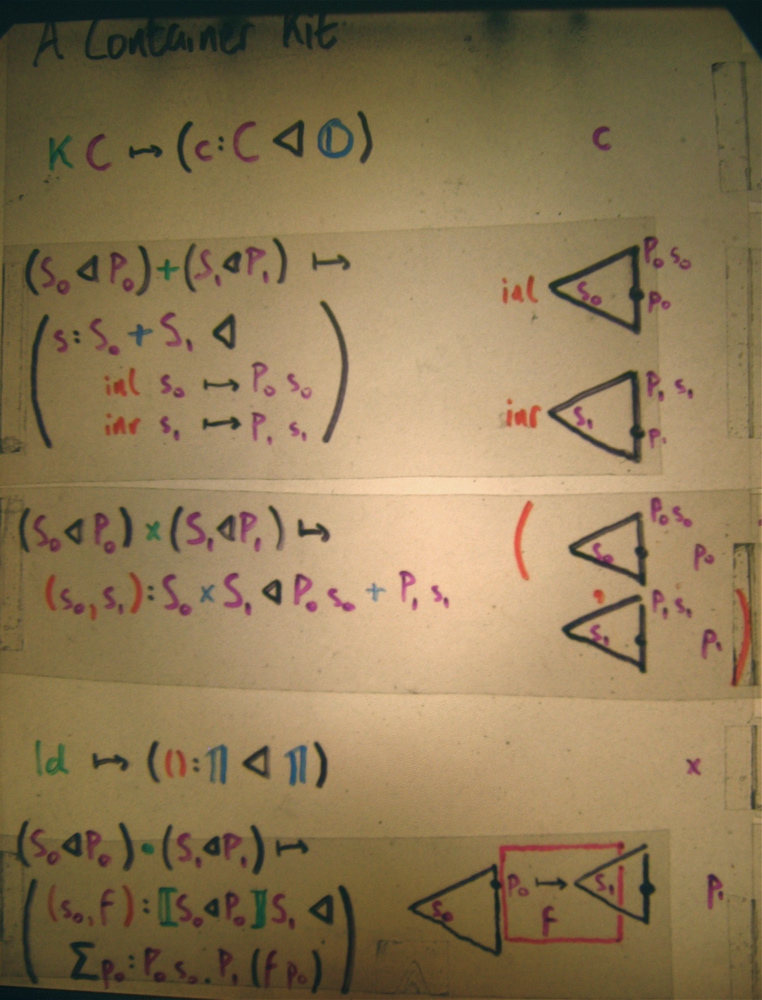 A Container Kit
K C ↦ (c : C ◁ 𝟘) c
(S₀ ◁ P₀) + (S₁ ◁ P₁) ↦
(s : S₀ + S₁ ◁
inl s₀ ↦ P₀ s₀
inr s₁ ↦ P₁ s₁)
inl s₀ P₀ s₀ p₀
inr s₁ P₁ s₁ p₁
(S₀ ◁ P₀) × (S₁ ◁ P₁) ↦
(s₀, s₁) : S₀ × S₁ ◁ P₀ s₀ + P₁ s₁
( s₀ P₀ s₀ p₀
, s₁ P₁ s₁ p₁ )
Id ↦ (() : 𝟙 ◁ 𝟙) x
(S₀ ◁ P₀) · (S₁ ◁ P₁) ↦
((s₀, f) : ⟦S₀ ◁ P₀⟧ S₁ ◁
Σ p₀ : P₀ s₀ . P₁ (f p₀))
s₀ p₀ ↦ s₁ p₁
f